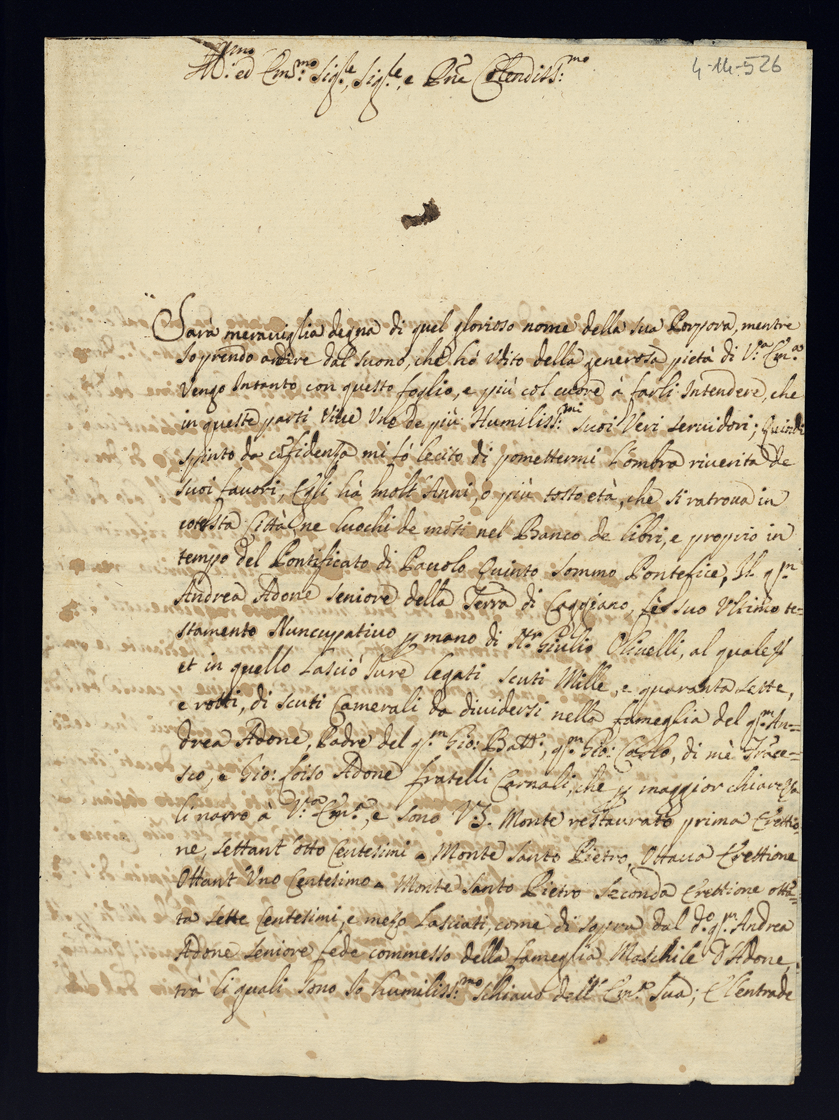 Ill.mo ed Em.mo Sig.re, Sig.re, e Pne Colendiss:mo
4-14-526
Sarà meraviglia degna di quel glorioso nome della sua Porpora, mentre
so prendo ardire dal suono, che hò Udito della generosa pietà di V.ra Em.za
Vengo Intanto con questo foglio, e più col cuore à farli Intendere, che
in queste parti Vive Uno de più Humiliss:mi suoi Veri servidori; Quindi
spinto da cōfidenza mi fò lecito di promettermi l'ombra riverita de
suoi favori, Egli hà molt'Anni, ò più tosto età, che si ratrova in
cotesta Città, ne luochi de mōti nel Banco de libri, e proprio in
tempo del Pontificato di Pavolo Quinto sommo Pontefice, Il q.m
Andrea Adone seniore della Terra di Caggiano, fe suo Ultimo te=
stamento Nuncupativo p mano di Nr. Giulio Olivelli, al quale
et in quello lasciò Jure legati scuti Mille, e quaranta sette,
e rotti, di scuti Camerali da dividersi nella fameglia del q.m An=
drea Adone, Padre del q.m Gio: Batt.a, q.m Gio: Carlo, di mè Frāce=
sco, e Gio: loiso Adone fratelli Carnali, che p maggior chiarezza
li narro à V.ra Em.za, e sono VZ. Monte restaurato prima Erettio
ne, settant'otto Centesimi = Monte santo Pietro, Ottava Erettione
Ottant'Uno Centesimo = Monte santo Pietro seconda Erettione ottā=
ta sette Centesimi, e mezo lasciati, come di sopra dal d.o q.m Andrea
Adone seniore fede commesso della fameglia Maschile d'Adone,
trà li quali sono Io humiliss:mo schiavo dell'Em.za sua; E l'entrade